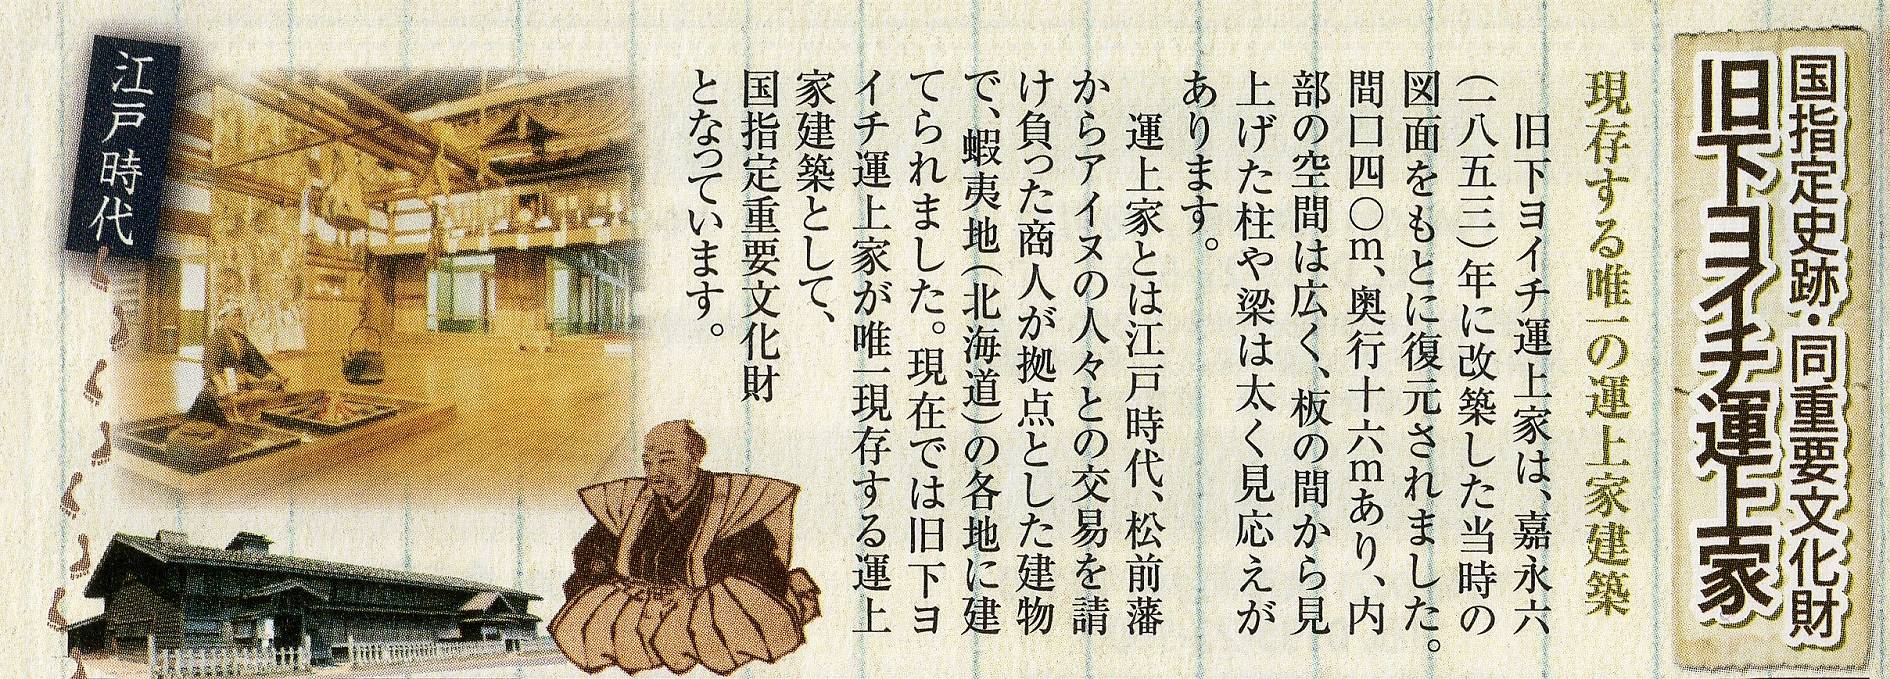 国指定史跡・同重要文化財
旧下ヨイチ運上家
現存する唯一の運上家建築
旧下ヨイチ運上家は、嘉永六
(一八五三)年に改築した当時の
図面をもとに復元されました。
間口四〇m、奥行十六mあり、内
部の空間は広く、板の間から見
上げた柱や梁は太く見応えが
あります。
運上家とは江戸時代、松前藩
からアイヌの人々との交易を請
け負った商人が拠点とした建物
で、蝦夷地(北海道)の各地に建
てられました。現在では旧下ヨ
イチ運上家が唯一現存する運上
家建築として、
国指定重要文化財
となっています。
江戸時代